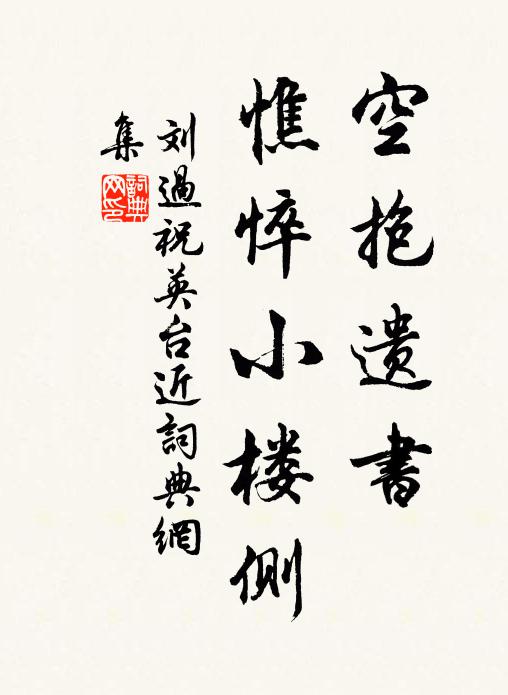 空抱遗書
憔悴小楼側
刘過祝英台近詞典網
集
詞典网印